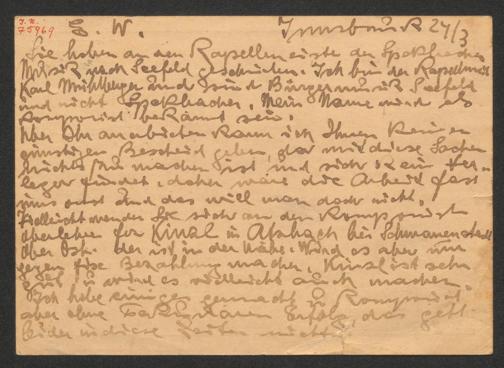 I.N. 75969
E. W. Innsbruck 24/3
Sie haben an den Kapellmeister der Speckbacher
Musik nach Seefeld geschrieben. Ich bin der Kapellmst
Karl Mühlberger und sind Bürgermusik Seefeld
und nicht Speckbacher. Mein Name wird als
Komponist bekannt sein.
Über Ihr anerbieten kann ich Ihnen keinen
günstigen Bescheid geben, da mit diese Sachen
nichts zu machen ist und sich kein Ver-
leger findet. daher wäre die Arbeit fast
um sonst und das will man doch nicht.
Vielleicht wenden Sie sich an den Komponist
Oberlehrer Kinzl in Atzbach bei Schwanenstadt
Ober Öst. der ist in der Nähe. Wird es aber nur
gegen fixe Bezahlung machen. Kinzl ist sehr
gut u. wird es vielleicht auch machen.
Ich habe einiges gemacht u. Komponiert,
aber ohne Erfolg, das geht
leider in diese Zeiten nicht.